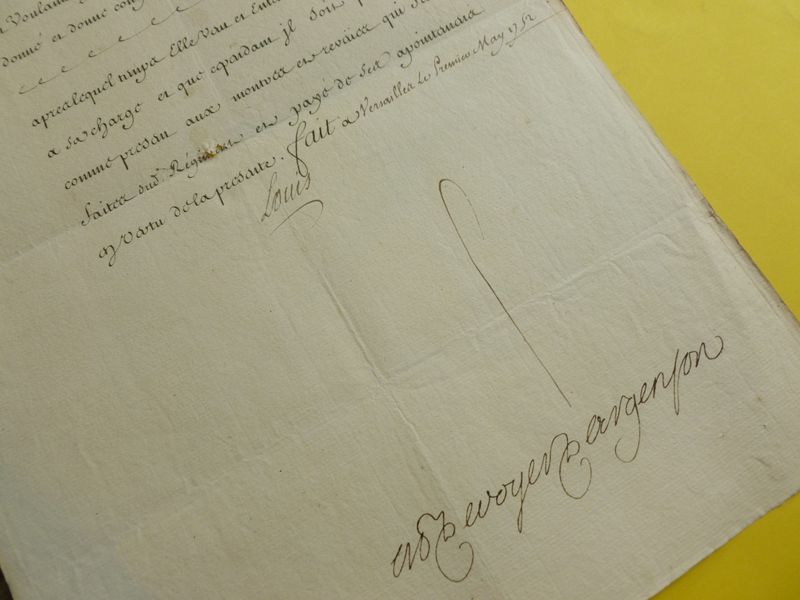 Voulant
donné et donne con
apres lequel temps Elle Veut et Entend
a sa charge et que cependant jl soit
comme present aux montres et reveües qui
faites dud. Regiment et payé de ses apointemens
en vertu de la presente. fait a Versailles Le Premier May 1752
Louis
M P De voyer D argenson